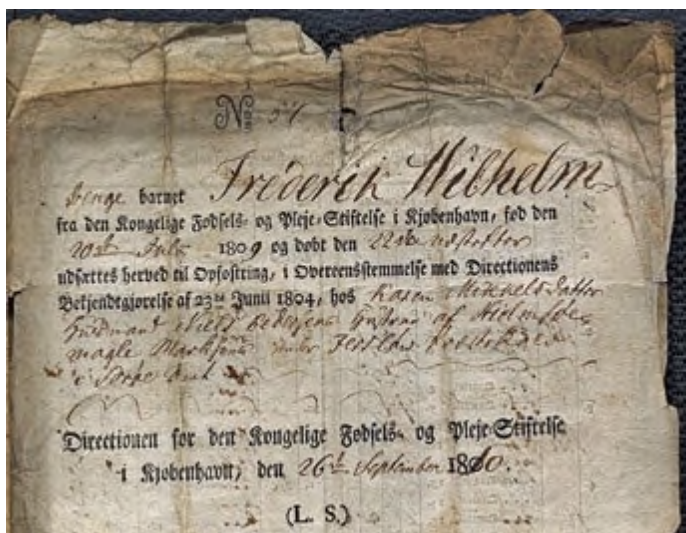 No 54
Drenge barnet Frederik Wilhelm
fra den Kongelige Fødsels- og Pleje-Stiftelse i Kjøbenhavn, fød den
20de July 1809 og døbt den 22de
udsættes herved til Opfostring, i Overeensstemmelse med Directionens
Bekjendtgjørelse af 23de Junii 1804, hos Karen Mikkels Datter
Huusmand Niels Pedersens Hustrue af
magle Marken under
i Soröe Amt
Directionen for den Kongelige Fødsels- og Pleje-Stiftelse
i Kjøbenhavn, den 26de September 1810.
(L. S.)